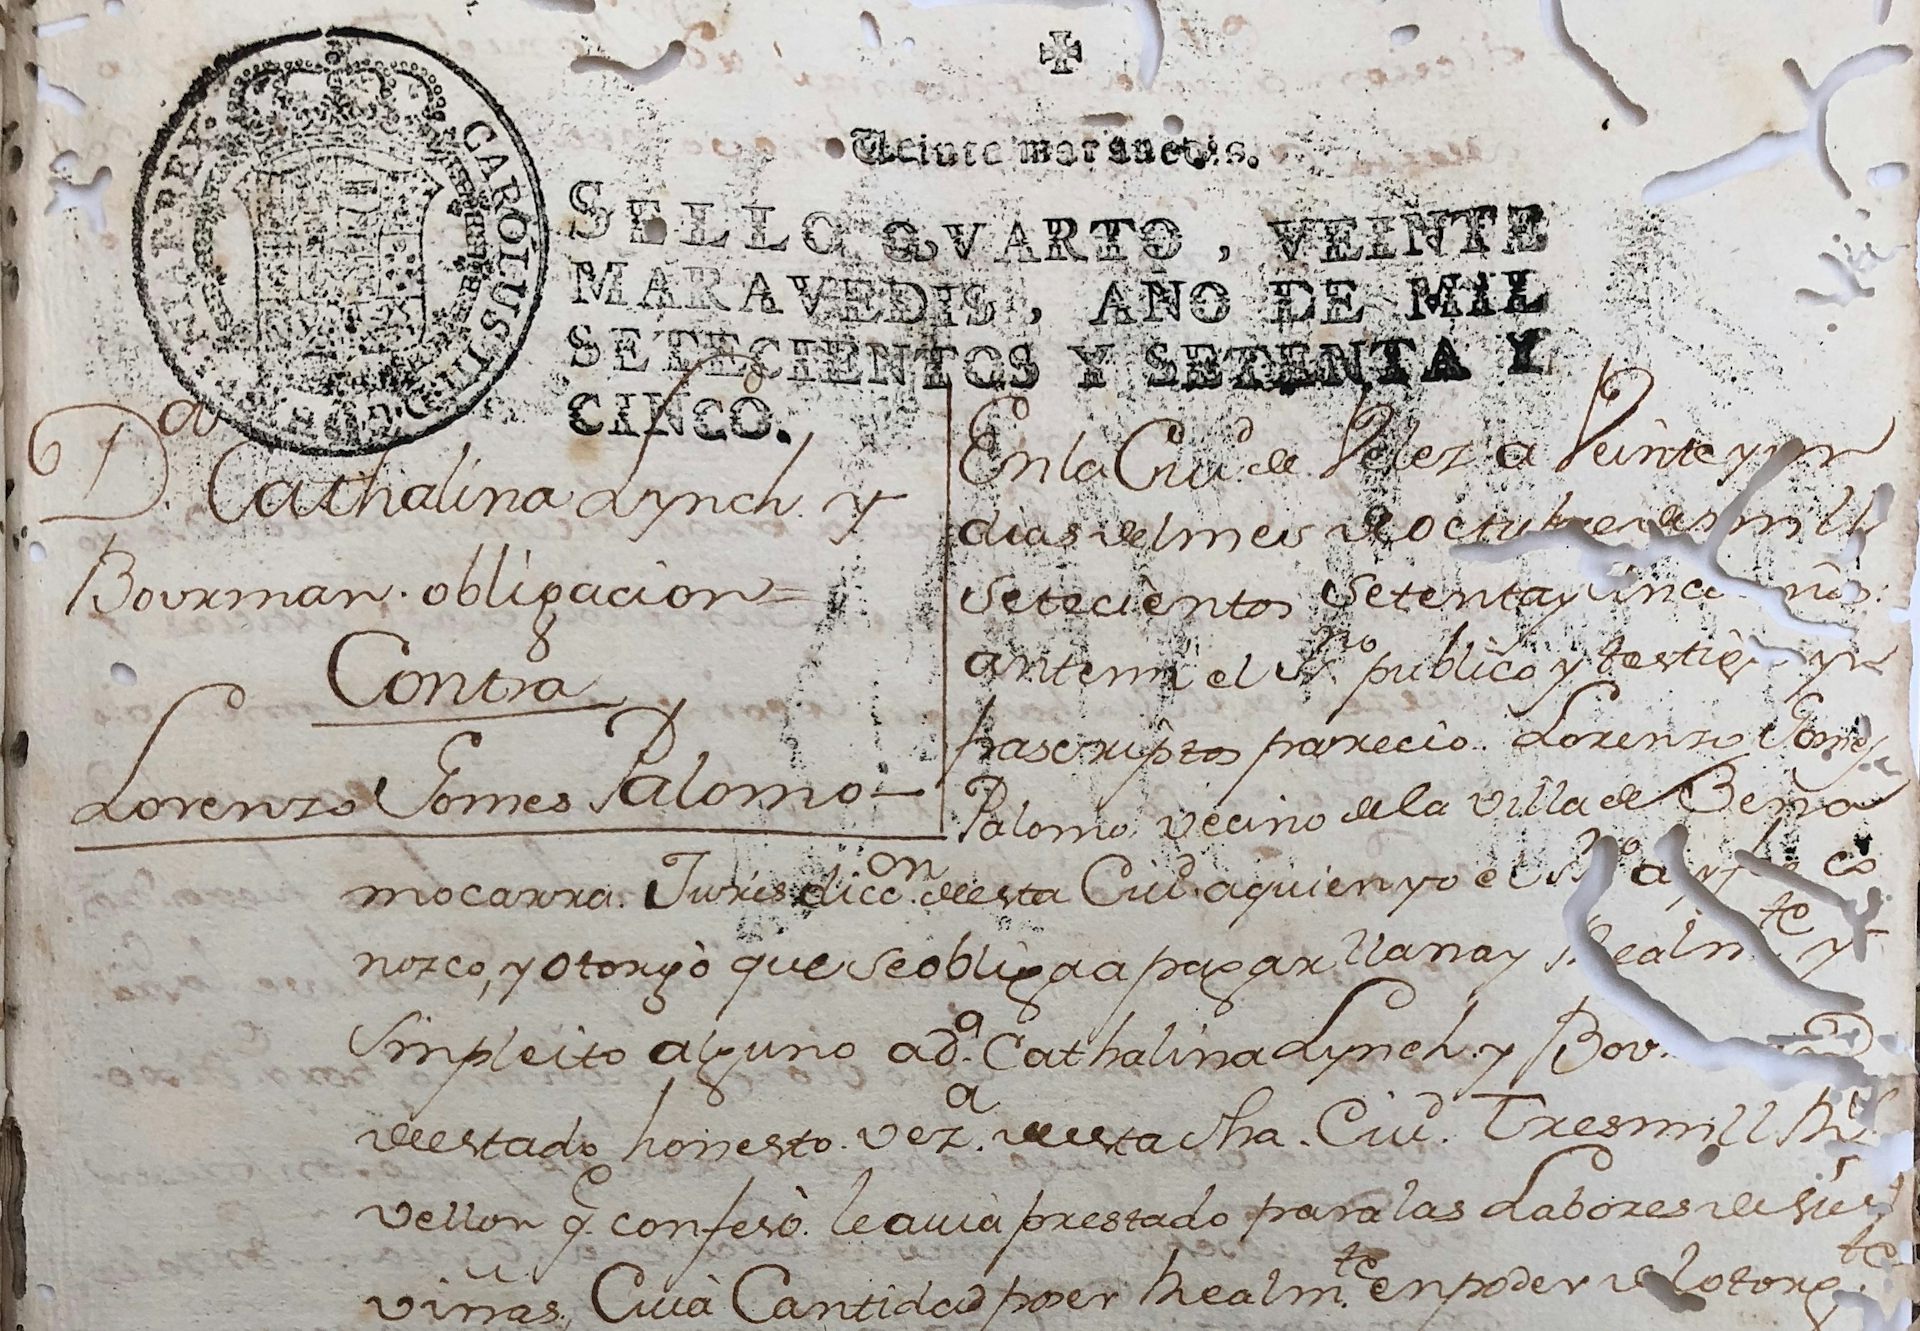 Veinte maravedis.
SELLO QVARTO, VEINTE
MARAVEDIS, AÑO DE MIL
SETECIENTOS Y SETENTA Y
CINCO.
CAROLUS III
D.ª Cathalina Lynch y
Bourman obligacion =
Contra
Lorenzo Gomes Palomo
En la Ciud de Velez a Veinte y un
dias del mes de octubre de mill
setecientos setenta y cinco
antemi el ss.no publico y testig
frascriptos parecio Lorenzo Gomez
Palomo vecino de la villa de Bena
mocarra Jurisdicc.on de esta Ciud. a quien yo el ss.no co
nozco, y otorgò que se obliga a pagar llana y Realm.te y
sin pleito alguno a d.ª Cathalina Lynch y Bou
de estado honesto vez.ª de esta dha. Ciud. Tres mill
vellon q. confesò le avia prestado para las Labores de
viñas, Cuia Cantidad poer Realm.te en poder del otorg.te